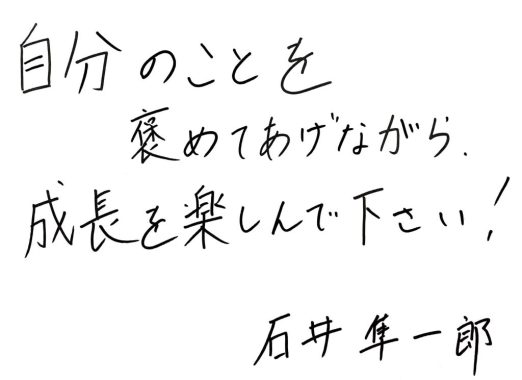 自分のことを
褒めてあげながら、
成長を楽しんで下さい!
石井隼一郎